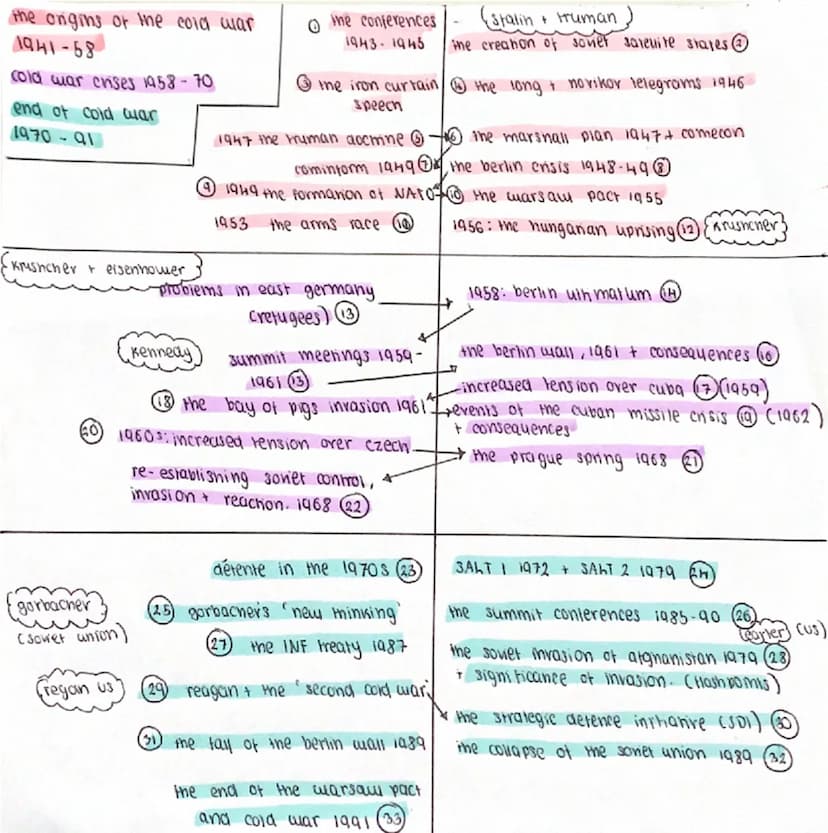 the origins of the cold war
1941-58
cold war crises 1958-70
end of cold war
1970-91
① the conferences
1943-1945
- (stalin + truman)
the creation of soviet satellite states ②
③ the iron curtain
speech
④ the long + novikov telegrams 1946
1947 the truman doctrine ⑤
⑥ the marshall plan 1947 + comecon
cominform 1949 ⑦
the berlin crisis 1948-49 ⑧
⑨ 1949 the formation of NATO
⑩ the warsaw pact 1955
1953 the arms race
1956: the hungarian uprising ⑫ krushchev
krushchev + eisenhower
problems in east germany
(refugees) ⑬
1958: berlin ultimatum ⑭
kennedy
summit meetings 1959-
1961 ⑬
the berlin wall, 1961 + consequences ⑯
increased tension over cuba ⑰ (1959)
⑱ the bay of pigs invasion 1961
events of the cuban missile crisis ⑲ (1962)
+ consequences
1960s: increased tension over czech
the prague spring 1968 ㉑
re-establishing soviet control,
invasion + reaction. 1968 ㉒
détente in the 1970s ㉓
SALT 1 1972 + SALT 2 1979 ㉔
gorbachev
(soviet union)
㉕ gorbachev's 'new thinking'
the summit conferences 1985-90 ㉖
carter (US)
㉗ the INF treaty 1987
the soviet invasion of afghanistan 1979 ㉘
+ significance of invasion. (flashpoints)
regan US
㉙ reagan + the 'second cold war'
the strategic defence initiative (SDI) ㉚
㉛ the fall of the berlin wall 1989
the collapse of the soviet union 1989 ㉜
the end of the warsaw pact
and cold war 1991 ㉝